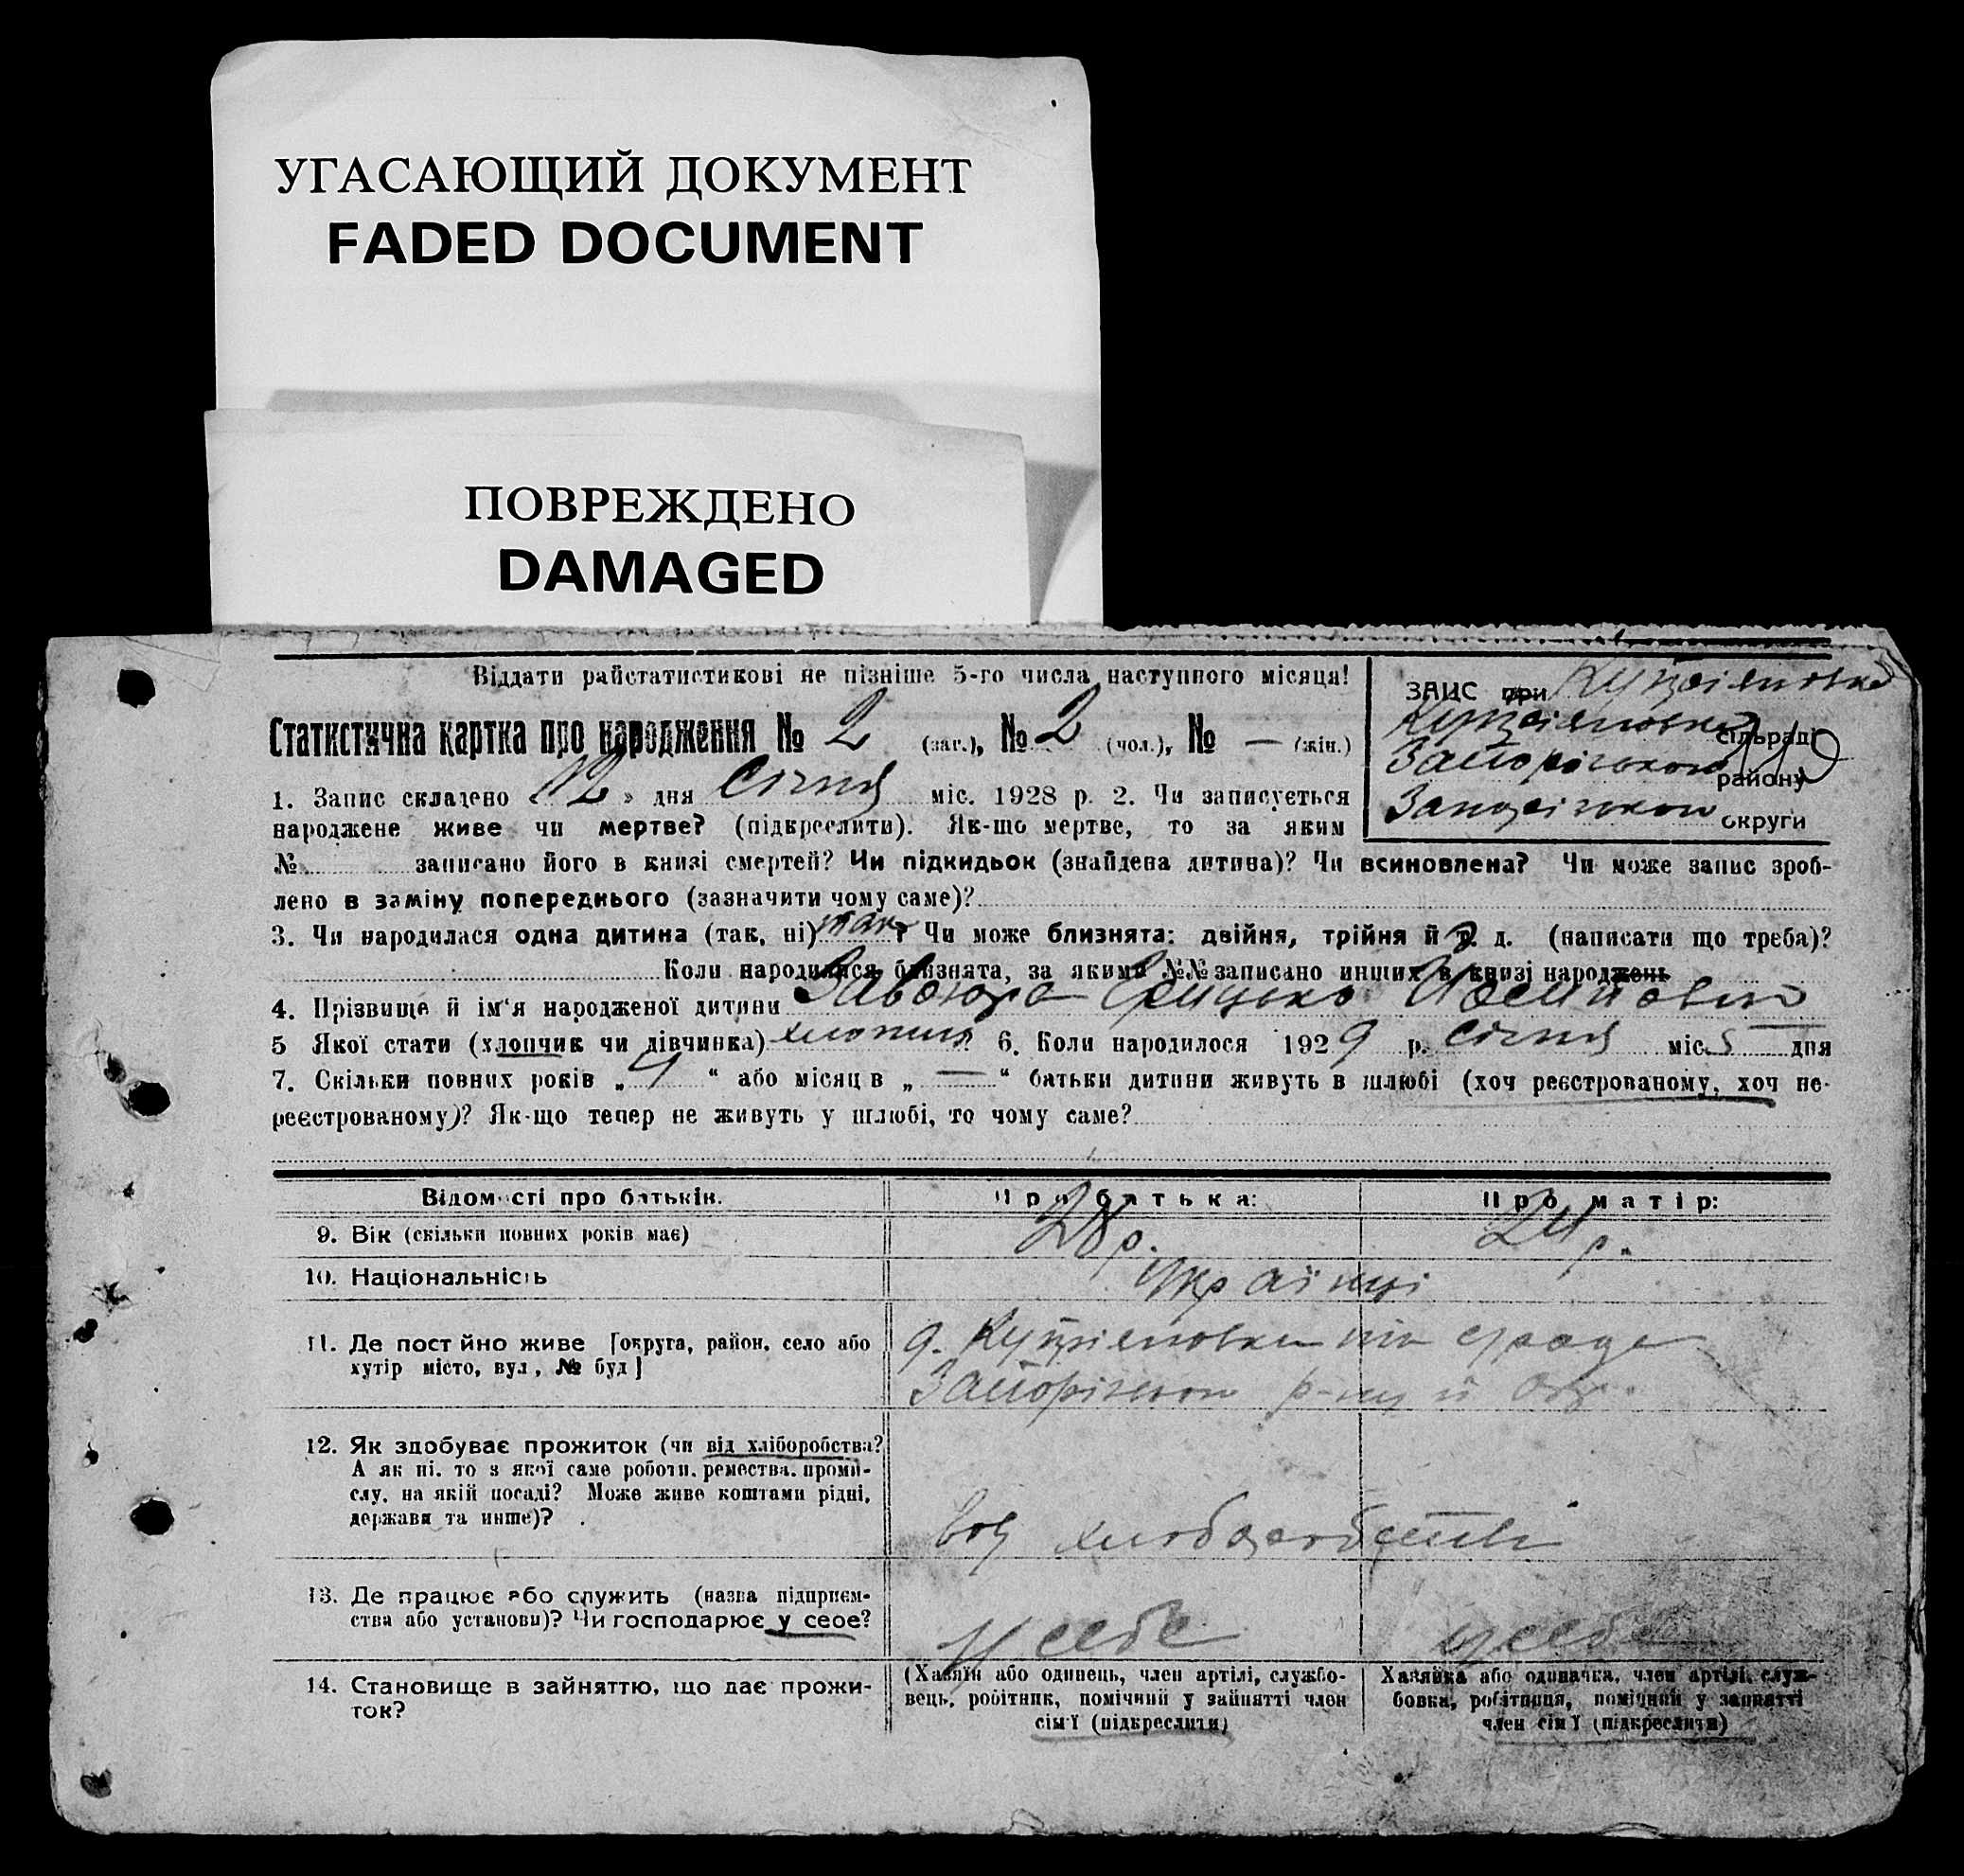 УГАСАЮЩИЙ ДОКУМЕНТ
FADED DOCUMENT
ПОВРЕЖДЕНО
DAMAGED
Віддати райстатистикові не пізніше 5-го числа наступного місяця!
ЗАГС при
сільраді
Запорізького району
Запорізького округи
Статистична картка про народження № 2 (заг.), № 2 (чол.), № — (жін.)
1. Запис складено „12" дня Січня міс. 1928 р. 2. Чи записується
народжене живе чи мертве? (підкреслити). Як-що мертве, то за яким
№ записано його в книзі смертей? Чи підкидьок (знайдена дитина)? Чи всиновлена? Чи може запис зроб-
лено в заміну попереднього (зазначити чому саме)?
3. Чи народилася одна дитина (так, ні) так? Чи може близнята: двійня, трійня й т. д. (написати що треба)?
Коли народилися близнята, за якими №№ записано инших в книзі народжень
4. Прізвище й ім'я народженої дитини Грицько
5 Якої стати (хлопчик чи дівчинка) хлопчик 6. Коли народилося 1929 р. січня міс. 5 дня
7. Скільки повних років „4" або місяців „—" батьки дитини живуть в шлюбі (хоч реєстрованому, хоч не-
реєстрованому)? Як-що тепер не живуть у шлюбі, то чому саме?
Відомості про батьків. Про батька: Про матір:
9. Вік (скільки повних років має) 28 р. 24 р.
10. Національність Українці
11. Де постійно живе [округа, район, село або
хутір місто, вул, № буд]
Запорізького р-ну й Окр.
12. Як здобуває прожиток (чи від хліборобства?
А як ні, то з якої саме роботи, ремества, проми-
слу, на якій посаді? Може живе коштами рідні,
держави та инше)?
від хліборобства
13. Де працює або служить (назва підприєм-
ства або установи)? Чи господарює у себе? у себе у себе
14. Становище в зайняттю, що дає прожи-
ток?
(Хазяїн або одинець, член артілі, службо-
вець, робітник, помічний у зайнятті член
сім'ї (підкреслити)
Хазяйка або одиначка, член артілі, служ-
бовка, робітниця, помічний у зайнятті
член сім'ї (підкреслити)